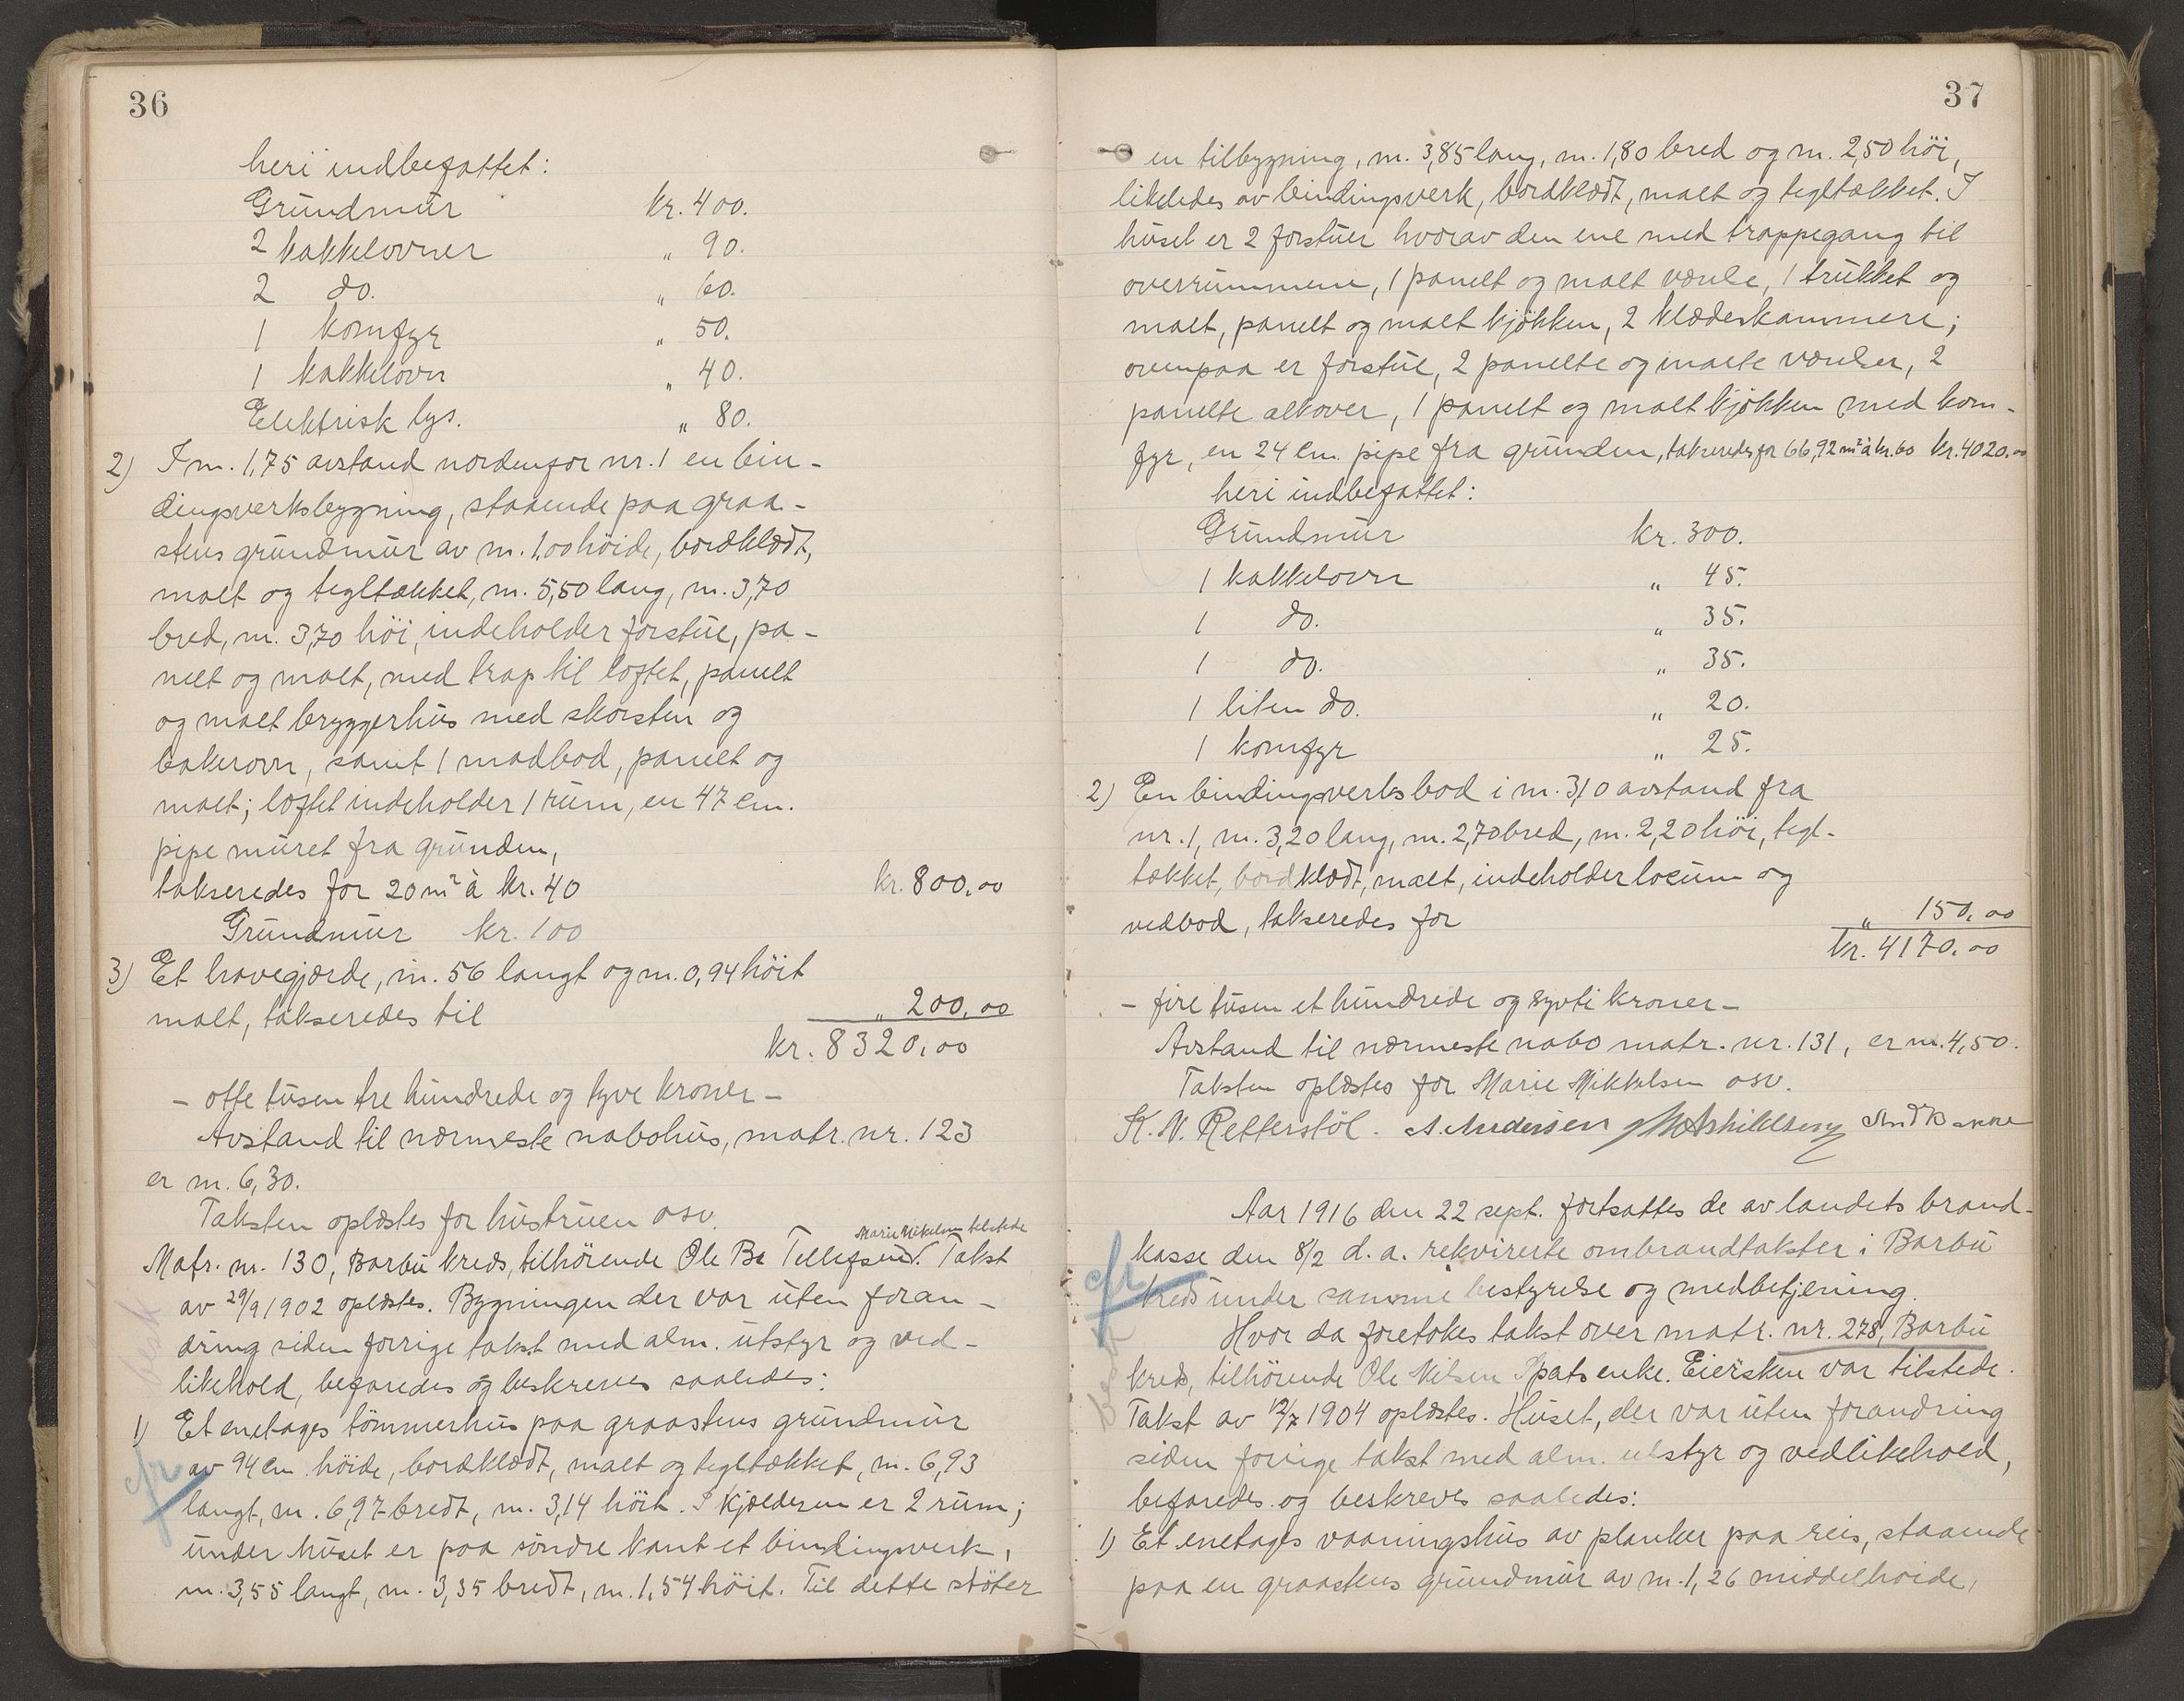 36
heri indbefattet:
Grundmur kr. 400.
2 kakkelovner " 90.
2 do. " 60.
1 komfyr " 50.
1 kakkelovn " 40.
Elektrisk lys. " 80.
2) I m. 1,75 avstand nordenfor nr. 1 en bin-
dingsverksbygning, staaende paa graa-
stens grundmur av m. 1,00 höide, bordklædt,
malt og tegltækket, m. 5,50 lang, m. 3,70
bred, m. 3,70 höi, indeholder forstue, pa-
nelt og malt, med trap til loftet, panelt
og malt bryggerhus med skorsten og
bakerovn, samt 1 madbod, panelt og
malt; loftet indeholder 1 rum, en 47 cm.
pipe muret fra grunden,
takseredes for 20 m² à kr. 40 kr. 800,00
Grundmur kr. 100
3) Et havegjærde, m. 56 langt og m. 0,94 höit
malt, takseredes til " 200,00
kr. 8320,00
- otte tusen tre hundrede og tyve kroner -
Avstand til nærmeste nabohus, matr. nr. 123
er m. 6,30.
Taksten oplæstes for hustruen osv.
Marie Mikelsen tilstede
Matr. nr. 130, Barbu kreds, tilhörende Ole Br Tellefsen. Takst
av 29/9 1902 oplæstes. Bygningen der var uten foran-
dring siden forrige takst med alm. utstyr og ved-
likehold, befaredes og beskreves saaledes:
1) Et enetages tömmerhus paa graastens grundmur
av 94 cm. höide, bordklædt, malt og tegltækket, m. 6,93
langt, m. 6,97 bredt, m. 3,14 höit. I kjælderen er 2 rum;
under huset er paa söndre kant et bindingsverk,
m. 3,55 langt, m. 3,35 bredt, m. 1,54 höit. Til dette stöter
37
en tilbygning, m. 3,85 lang, m. 1,80 bred og m. 2,50 höi,
likeledes av bindingsverk, bordklædt, malt og tegltækket. I
huset er 2 forstuer hvorav den ene med trappegang til
overrummene, 1 panelt og malt værelse, 1 trukket og
malt, panelt og malt kjökken, 2 klædeskammere;
ovenpaa er forstue, 2 panelte og malte værelser, 2
panelte alkover, 1 panelt og malt kjökken med kom-
fyr, en 24 cm. pipe fra grunden, takseredes for 66,92 m² à kr. 60 kr. 4020.00
heri indbefattet:
Grundmur kr. 300.
1 kakkelovn " 45.
1 do. " 35.
1 do. " 35.
1 liten do. " 20.
1 komfyr " 25.
2) En bindingsverksbod i m. 3,10 avstand fra
nr. 1, m. 3,20 lang, m. 2,70 bred, m. 2,20 höi, tegl-
tækket, bordklædt, malt, indeholder locum og
vedbod, takseredes for " 150,00
kr. 4170.00
- fire tusen et hundrede og sytti kroner -
Avstand til nærmeste nabo matr. nr. 131, er m. 4,50.
Taksten oplæstes for Marie Mikkelsen osv.
K. N. Retterstöl. A. Andersen And Bakke
Aar 1916 den 22 sept. fortsattes de av landets brand-
kasse den 8/2 d. a. rekvirerte ombrandtakster i Barbu
kreds under samme bestyrelse og medbetjening.
Hvor da foretokes takst over matr. nr. 278, Barbu
kreds, tilhörende Ole Nilsen Spats enke. Eiersken var tilstede.
Takst av 12/7 1904 oplæstes. Huset, der var uten forandring
siden forrige takst med alm. utstyr og vedlikehold,
befaredes og beskreves saaledes:
1) Et enetages vaaningshus av planker paa reis, staaende
paa en graastens grundmur av m. 1,26 middelhöide,